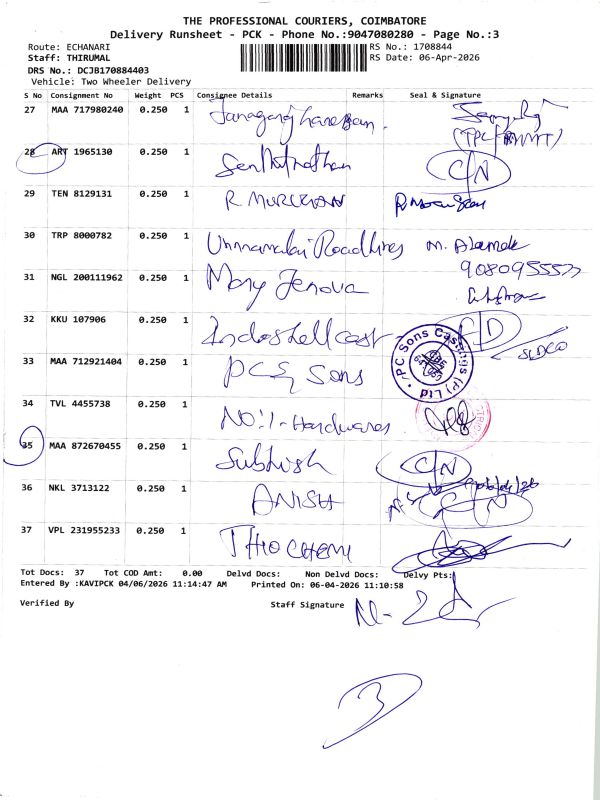 THE PROFESSIONAL COURIERS, COIMBATORE
Delivery Runsheet - PCK - Phone No.:9047080280 - Page No.:3
Route: ECHANARI
Staff: THIRUMAL
RS No.: 1708844
RS Date: 06-Apr-2026
DRS No.: DCJB170884403
Vehicle: Two Wheeler Delivery
S No Consignment No Weight PCS Consignee Details Remarks Seal & Signature
27 MAA 717980240 0.250 1
28 ART 1965130 0.250 1 Senthilnathan C/N
29 TEN 8129131 0.250 1 R MURUGAN
30 TRP 8000782 0.250 1 Unnamalai Roadlines M.
31 NGL 200111962 0.250 1 Mary Jenova
32 KKU 107906 0.250 1 Indoshell cast
33 MAA 712921404 0.250 1 PC Sons PC Sons Castings (P) Ltd
34 TVL 4455738 0.250 1 NO:1- Hardwares
35 MAA 872670455 0.250 1 Subhish C/N
36 NKL 3713122 0.250 1 ANISH C/N
37 VPL 231955233 0.250 1 THIO CHEM
Tot Docs: 37 Tot COD Amt: 0.00 Delvd Docs: Non Delvd Docs: Delvy Pts:
Entered By :KAVIPCK 04/06/2026 11:14:47 AM Printed On: 06-04-2026 11:10:58
Verified By Staff Signature
3